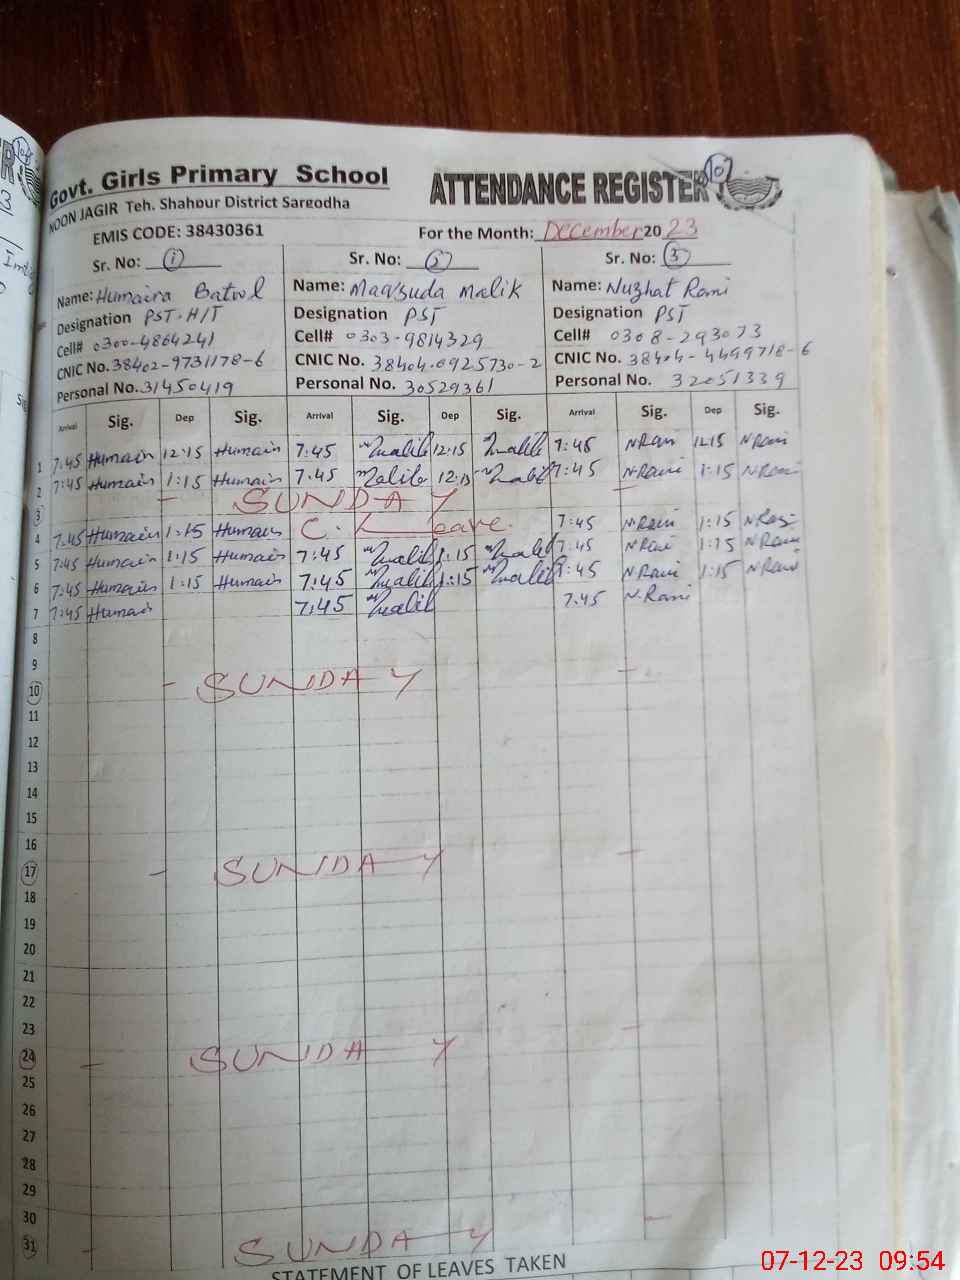 107
Govt. Girls Primary School
ATTENDANCE REGISTER
NOON JAGIR Teh. Shahpur District Sargodha
EMIS CODE: 38430361
For the Month: December 2023
Sr. No: 1 Sr. No: 2 Sr. No: 3
Name: Humaira Batool Name: Maqsuda Malik Name: Nuzhat Rani
Designation PST-H/T Designation PST Designation PST
Cell# 0300-4864241 Cell# 0303-9814329 Cell# 0308-293073
CNIC No. 38402-9731178-6 CNIC No. 38404-0925730-2 CNIC No. 38404-4499718-6
Personal No. 31450419 Personal No. 30529361 Personal No. 32051339
Arrival Sig. Dep Sig. Arrival Sig. Dep Sig. Arrival Sig. Dep Sig.
1 7:45 Humain 12:15 Humain 7:45 Malik 12:15 Malik 7:45 N.Rani 12:15 N.Rani
2 7:45 Humain 1:15 Humain 7:45 Malik 12:15 Malik 7:45 N.Rani 1:15 N.Rani
3 - SUNDAY -
4 7:45 Humain 1:15 Humain C. Leave 7:45 N.Rani 1:15 N.Rani
5 7:45 Humain 1:15 Humain 7:45 Malik 1:15 Malik 7:45 N.Rani 1:15 N.Rani
6 7:45 Humain 1:15 Humain 7:45 Malik 1:15 Malik 7:45 N.Rani 1:15 N.Rani
7 7:45 Humain 7:45 Malik 7:45 N.Rani
8
9
10 - SUNDAY -
11
12
13
14
15
16
17 - SUNDAY -
18
19
20
21
22
23
24 - SUNDAY -
25
26
27
28
29
30
31 - SUNDAY -
STATEMENT OF LEAVES TAKEN
07-12-23 09:54